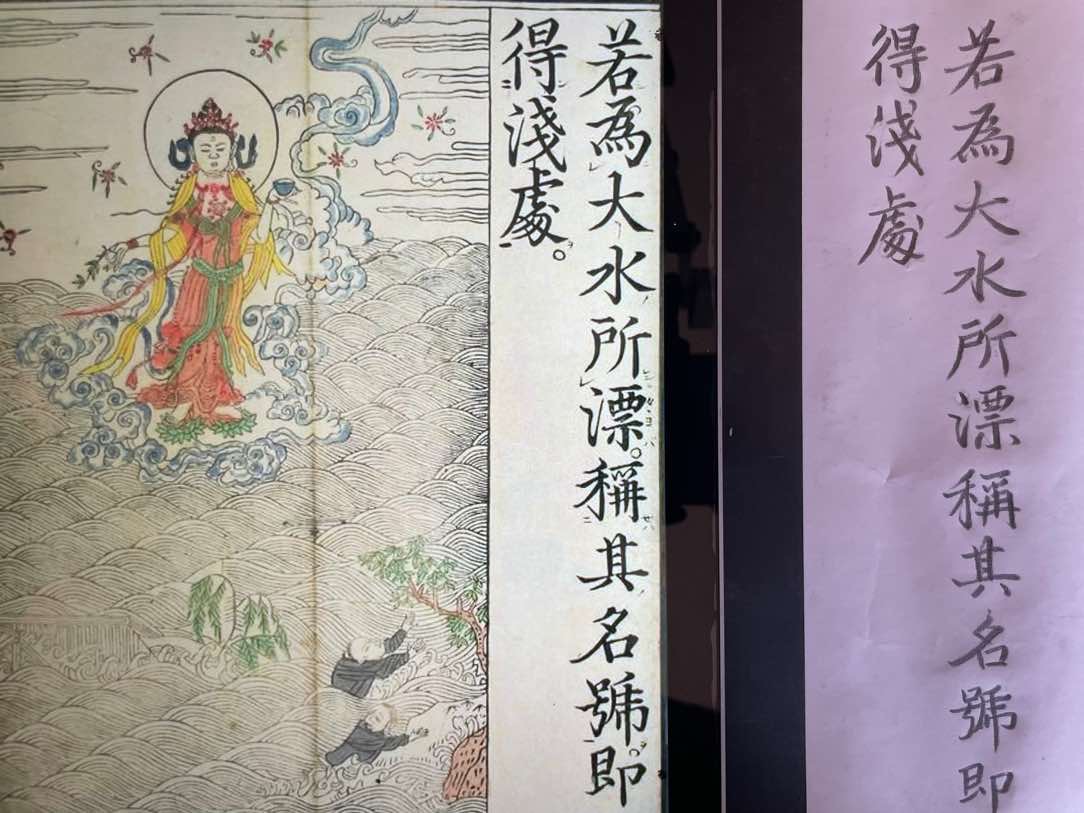 若為大水所漂。稱其名號。即
得淺處。
若為大水所漂稱其名號即
得淺處